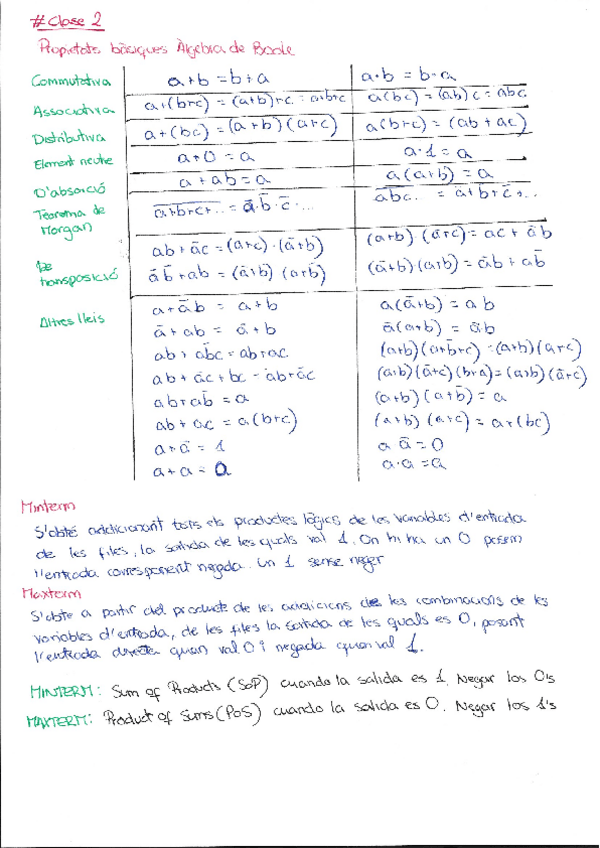 # Clase 2
Propietats bàsiques Àlgebra de Boole
Commutativa a+b = b+a a·b = b·a
Associativa a+(b+c) = (a+b)+c = a+b+c a(bc) = (ab)c = abc
Distributiva a+(bc) = (a+b)(a+c) a(b+c) = (ab+ac)
Element neutre a+0 = a a·1 = a
D'absorció a+ab = a a(a+b) = a
Teorema de Morgan a̅+̅b̅+̅c̅+̅.̅.̅ = a̅·b̅·c̅·... a̅b̅c̅.. = a̅+b̅+c̅+...
De transposició ab+a̅c = (a+c)·(a̅+b) (a+b)·(a̅+c) = ac+a̅b
a̅b̅+ab = (a+b̅)(a̅+b) (a̅+b̅)(a+b) = a̅b+ab̅
Altres lleis a+a̅b = a+b a(a̅+b) = ab
a̅+ab = a̅+b a̅(a+b) = a̅b
ab+ab̅c = ab+ac (a+b)(a+b̅+c) = (a+b)(a+c)
ab+a̅c+bc = ab+a̅c (a+b)(a̅+c)(b+c) = (a+b)(a̅+c)
ab+ab̅ = a (a+b)(a+b̅) = a
ab+ac = a(b+c) (a+b)(a+c) = a+(bc)
a+a̅ = 1 a a̅ = 0
a+a = a a·a = a
Minterm
S'obté addicionant tots els productes lògics de les variables d'entrada
de les files, la sortida de les quals val 1. On hi ha un 0 posem
l'entrada corresponent negada. un 1 sense negar
Maxterm
S'obté a partir del producte de les addicions de les combinacions de les
variables d'entrada, de les files la sortida de les quals es 0, posant
l'entrada directa quan val 0 i negada quan val 1.
MINTERM: Sum of Products (SoP) cuando la salida es 1. Negar los 0's
MAXTERM: Product of Sums (PoS) cuando la salida es 0. Negar los 1's